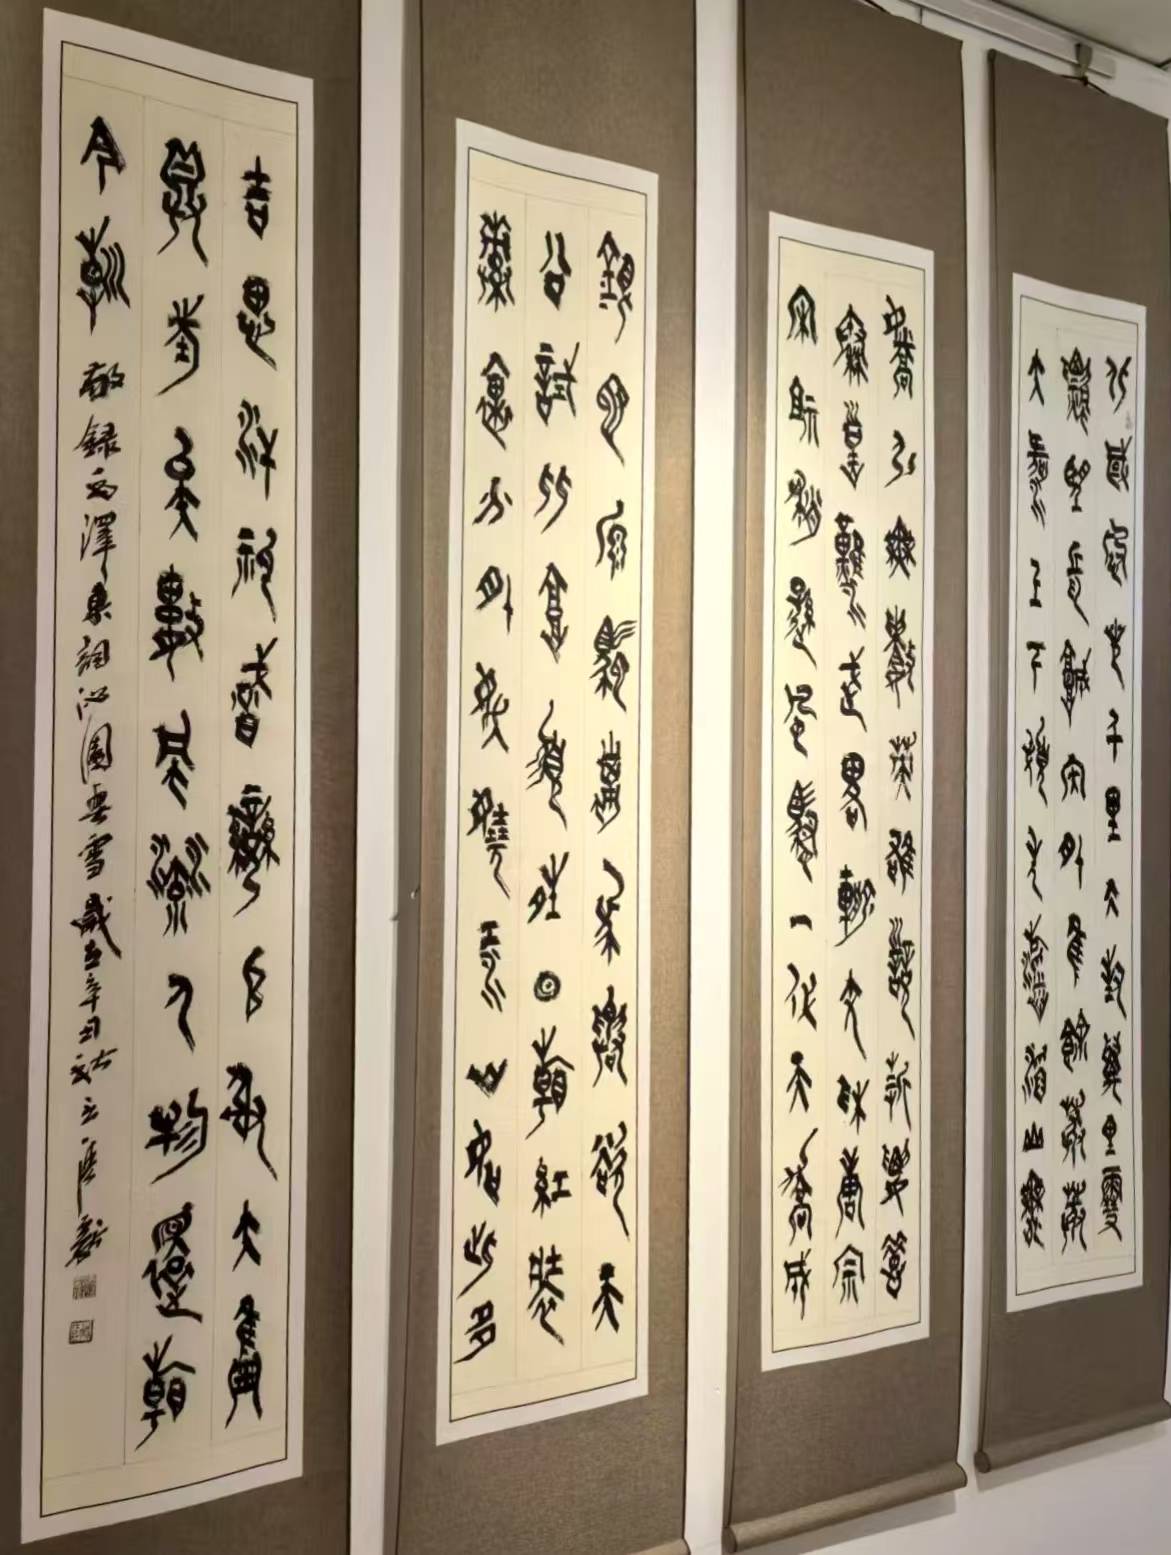 北國風光千里冰封萬里雪
飄望長城內外惟餘莽莽
大河上下頓失滔滔山舞
嬌引無數英雄競折腰惜
秦皇漢武略輸文采唐宗
宋祖稍遜風騷一代天驕成
銀蛇原馳蠟象欲與天
公試比高須晴日看紅裝
素裹分外妖嬈江山如此多
吉思汗祇識彎弓射大雕
俱往矣數風流人物還看
今朝 敬錄毛澤東詞沁園春雪歲在辛丑